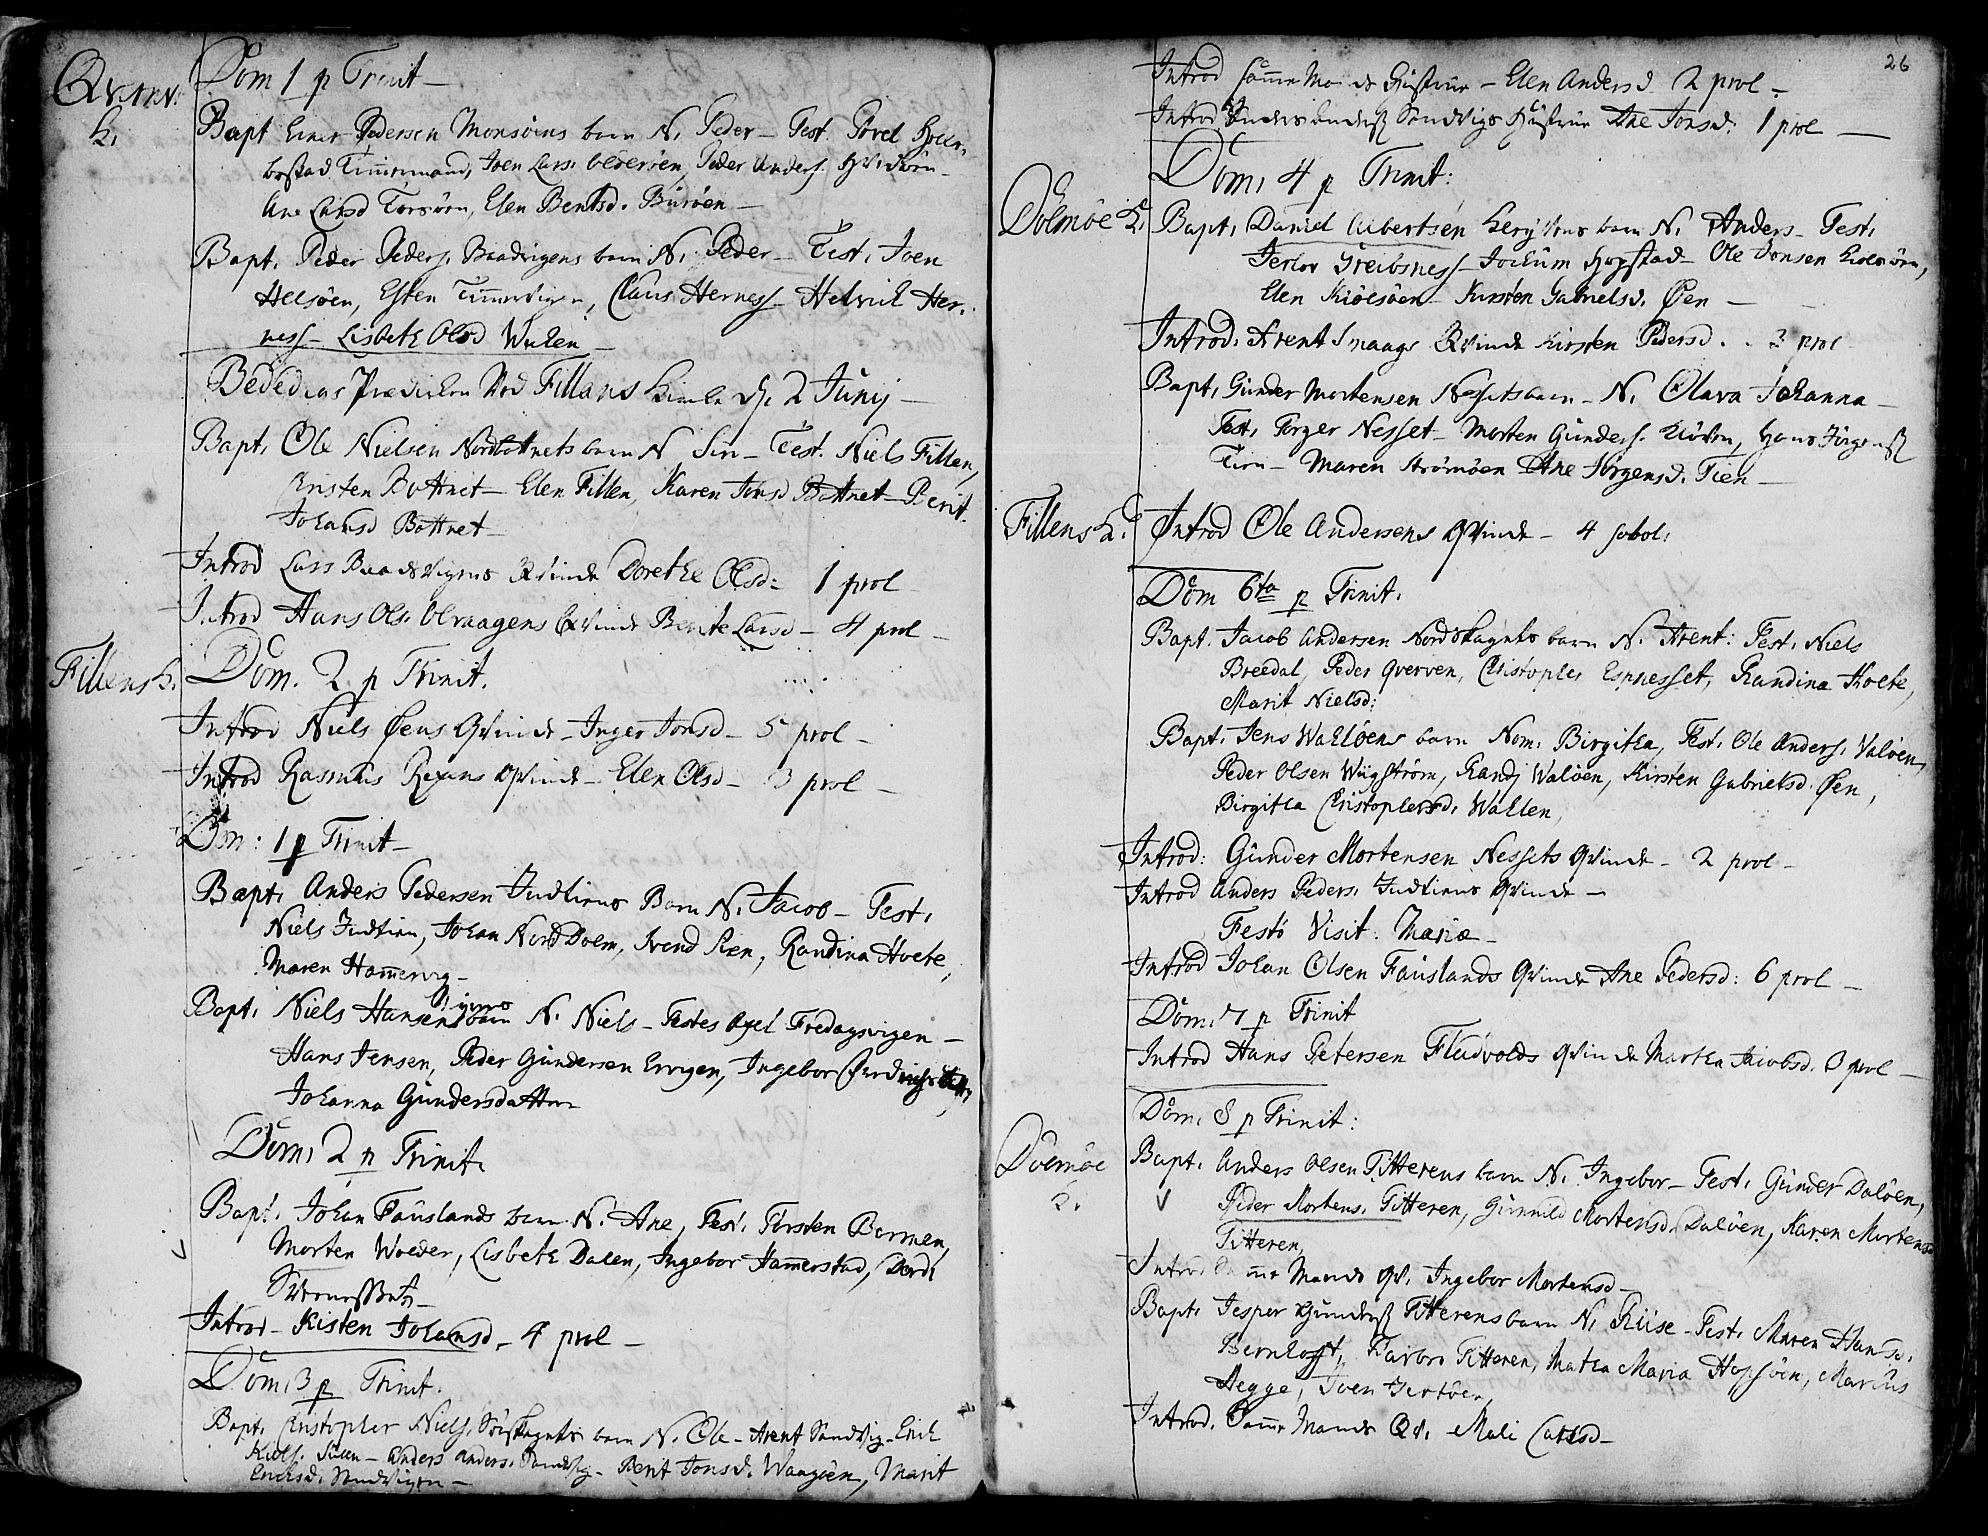 Qvæn:
K.
Dom 1 p Trinit
Bapt Einer Pedersen Monsøens barn N. Peder Test. Povel Hollen-
bostad Timmermand, Joen Lars. Peder Anders.
Ane Larsd Torsøen, Elen Bentsd. Burøen
Bapt. Peder Peders. Baadvigens barn N. Peder Test. Joen
Helsøen, Esten Timmervigen, Claus Herness Helvich Her-
ness Lisbeth Olsd Wuken
Bededags Prædiken Ved Fillans Kirke d. 2 Junij
Bapt. Ole Nielsen Nordbottnets barn N Siri Test. Niels Fillen,
Christen Bottnet Elen Fillen, Karen Jonsd Bottnet Berit
Johansd Bottnet
Introd Lars Baadsvigens Qvinde Dorethe Olsd: 1 prol
Introd Hans Ols. Olvaagens Qvinde Berite Larsd 4 prol
Fillens K.
Dom. 2 p Trinit.
Introd Niels Øens Qvinde Inger Jonsd 5 prol
Introd Rasmus Rexens Qvinde Elen Olsd 3 prol
Dom: 1 p Trinit
Bapt. Anders Pedersen Indtiens Barn N. Jacob Test.
Niels Indtien, Johan Nord Dolm, Svend Sien, Randina Hvete,
Maren Hammervig
Bapt. Niels Hansen barn N. Niels Testes Axel Fredagsvigen
Hans Jensen, Peder Gundersen Ervigen, Ingebor
Johanna Gundersdatter
Dom. 2 p Trinit.
Bapt. Johan Fauslands barn N. Ane, Test. Torsten Bormen,
Morten Woeder, Lisbeth Dalen, Ingebor Hammerstad, Dordi
Introd Kisten Johansd 4 prol
Dom. 3 p Trinit.
Bapt. Christopher Niels. Sørskagets barn N. Ole Arent Sandvig Erich
Anders Anders. Sandvig Berit Jonsd. Waagøen, Marit
Erichsd. Sandvigen
26
Introd samme Mands Hustrue Elen Andersd 2 prol
Introd Anders Sandvigs Hustrue Ane Jonsd. 1 prol
Dom. 4 p Trinit:
Dolmøe K.
Bapt. Daniel Albertsen barn N. Anders Test.
Jertov Greibsness Jochum Hopstad Ole Jonsen
Elen Kiølsøen Kirsten Gabrielsd. Øen
Introd. Arent Snaags Qvinde Kirsten Pedersd. 3 prol
Bapt. Gunder Mortensen Nessets barn N. Olava Johanna
Test. Torger Nesset Morten Gunders. Hans Jørgens
Tien Maren Strømøen Ane Jørgensd. Tien
Fillens K.
Introd Ole Andersens Qvinde 4 sobol.
Dom 6ta p Trinit.
Bapt. Jacob Andersen Nordskagets barn N. Arent: Test. Niels
Breedal, Peder Qverven, Christopher Espnesset, Randina Hvete,
Marit Nielsd:
Bapt. Jens Wahløens barn Nom. Birgitha, Test. Ole Anders. Valøen,
Peder Olsen Wiigstrøm, Randj Waløen, Kirsten Gabrielsd. Øen,
Birgitha Christophersd. Wahlen
Introd: Gunder Mortensen Nessets Qvinde 2 prol
Introd Anders Peders. Indtiens Qvinde
Festo Visit. Mariæ
Introd Johan Olsen Fauslands Qvinde Ane Pedersd: 6 prol
Dom. 7 p Trinit
Introd Hans Petersen Fludvolds Qvinde Martha Jacobsd. 3 prol
Dom. 8 p Trinit:
Dolmøe
K.
Bapt. Anders Olsen Titterens barn N. Ingebor Test. Gunder Daløen,
Peder Mortens. Titteren, Gunnild Mortensd. Daløen, Karen Mortensd
Titteren,
Introd Samme Mands Qv. Ingebor Mortensd
Bapt. Jesper Titterens barn N. Riise Test. Maren Hansd.
Bernhoft, Barbro Titteren, Matha Maria Hopsøen, Marcus
Hegge, Joen Jertøen,
Introd. Samme Mands Qv. Mali Larsd